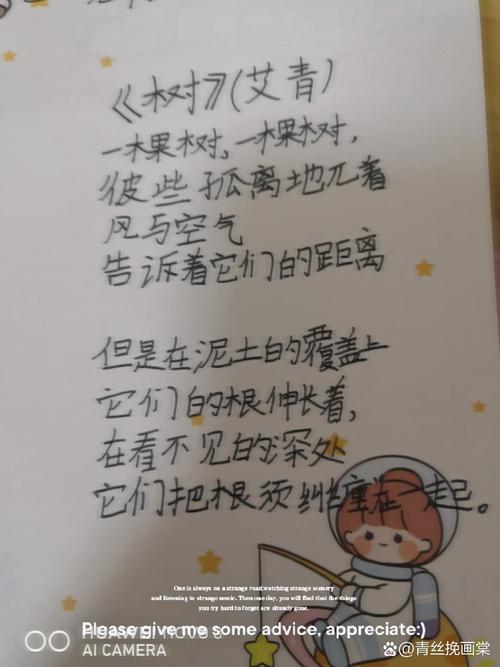 《树》(艾青)
一棵树,一棵树,
彼些孤离地兀着
风与空气
告诉着它们的距离
但是在泥土的覆盖上
它们的根伸长着,
在看不见的深处
它们把根须纠缠在一起。
One is always on a strange road,watching strange scenery
and listening to strange music. Then one day, you will find that the things
you try hard to forget are already gone.
Please give me some advice, appreciate:)
AI CAMERA
@青丝挽画棠